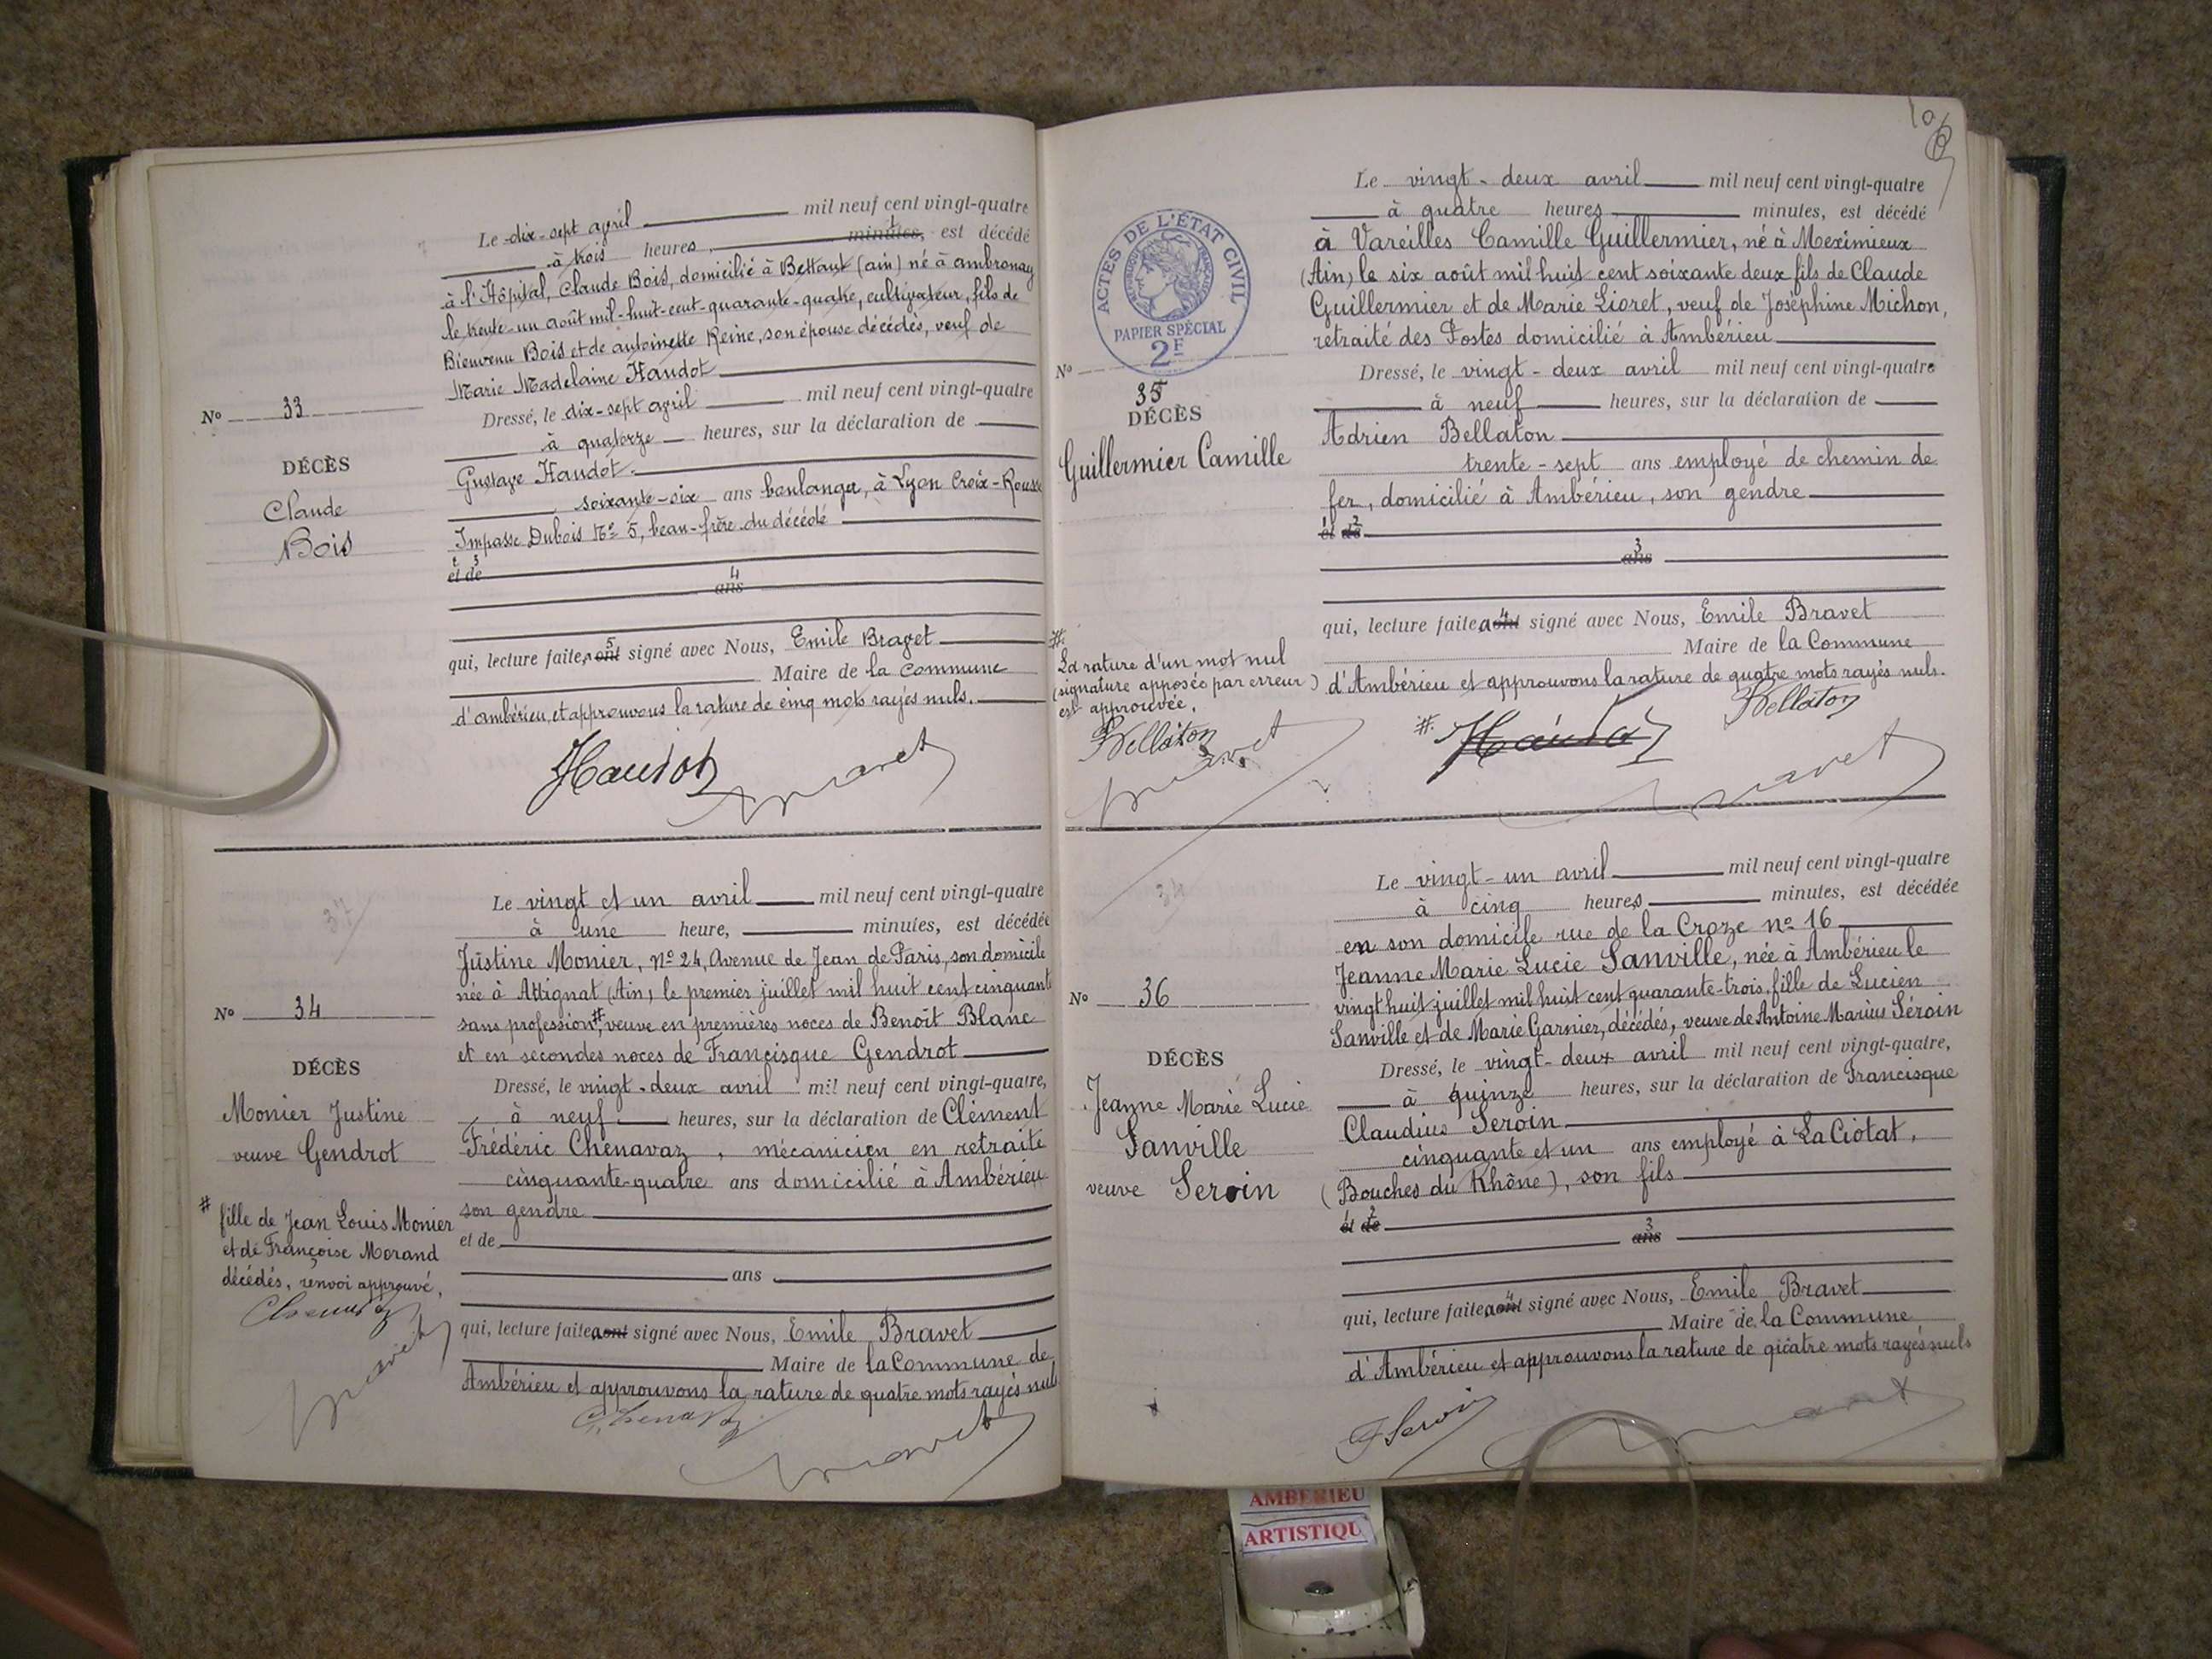 Le dix-sept avril mil neuf cent vingt-quatre
à trois heures minutes, est décédé
à l'Hôpital, Claude Bois, domicilié à Bettant (ain) né à ambronay
le trente-un août mil-huit-cent-quarante-quatre, cultivateur, fils de
Bienvenu Bois et de antoinette Reine, son épouse décédés, veuf de
Marie Madelaine Haudot
Dressé, le dix-sept avril mil neuf cent vingt-quatre
à quatorze heures, sur la déclaration de
Gustave Haudot
soixante-six ans boulanger, à Lyon Croix-Rousse
Impasse Dubois No 5, beau-frère du décédé
et de
ans
qui, lecture faite, a ont signé avec Nous, Emile Bravet
Maire de la commune
d'ambérieu, et approuvons la rature de cinq mots rayés nuls.
Haudot Bravet
No 33
DÉCÈS
Claude
Bois
Le vingt et un avril mil neuf cent vingt-quatre
à une heure, minutes, est décédée
Justine Monier, No 24, Avenue de Jean de Paris, son domicile
née à Attignat (Ain) le premier juillet mil huit cent cinquante
sans profession #, veuve en premières noces de Benoît Blanc
et en secondes noces de Francisque Gendrot
Dressé, le vingt-deux avril mil neuf cent vingt-quatre,
à neuf heures, sur la déclaration de Clément
Frédéric Chenavaz, mécanicien en retraite
cinquante-quatre ans domicilié à Ambérieu
son gendre
et de
ans
qui, lecture faite a ont signé avec Nous, Emile Bravet
Maire de la Commune de
Ambérieu et approuvons la rature de quatre mots rayés nuls
Chenavaz
Bravet
No 34
DÉCÈS
Monier Justine
veuve Gendrot
# fille de Jean Louis Monier
et de Françoise Morand
décédés, renvoi approuvé,
Chenavaz
Bravet
Le vingt-deux avril mil neuf cent vingt-quatre
à quatre heures minutes, est décédé
à Vareilles Camille Guillermier, né à Meximieux
(Ain) le six août mil huit cent soixante deux fils de Claude
Guillermier et de Marie Lioret, veuf de Joséphine Michon,
retraité des Postes domicilié à Ambérieu
Dressé, le vingt-deux avril mil neuf cent vingt-quatre
à neuf heures, sur la déclaration de
Adrien Bellaton
trente-sept ans employé de chemin de
fer, domicilié à Ambérieu, son gendre
et de
ans
qui, lecture faite a ont signé avec Nous, Emile Bravet
Maire de la Commune
d'Ambérieu et approuvons la rature de quatre mots rayés nuls.
Bellaton
# Haudot
Bravet
ACTES DE L'ÉTAT CIVIL
RÉPUBLIQUE FRANÇAISE
PAPIER SPÉCIAL
2F
No 35
DÉCÈS
Guillermier Camille
#
La rature d'un mot nul
(signature apposée par erreur)
est approuvée.
Bellaton
Bravet
Le vingt-un avril mil neuf cent vingt-quatre
à cinq heures minutes, est décédée
en son domicile rue de la Croze no 16
Jeanne Marie Lucie Sanville, née à Ambérieu le
vingt huit juillet mil huit cent quarante-trois, fille de Lucien
Sanville et de Marie Garnier, décédés, veuve de Antoine Marius Séroin
Dressé, le vingt-deux avril mil neuf cent vingt-quatre,
à quinze heures, sur la déclaration de Francisque
Claudius Seroin
cinquante et un ans employé à La Ciotat,
(Bouches du Rhône), son fils
et de
ans
qui, lecture faite a ont signé avec Nous, Emile Bravet
Maire de la Commune
d'Ambérieu et approuvons la rature de quatre mots rayés nuls
F Seroin
Bravet
No 36
DÉCÈS
Jeanne Marie Lucie
Sanville
veuve Seroin
AMBERIEU
ARTISTIQU